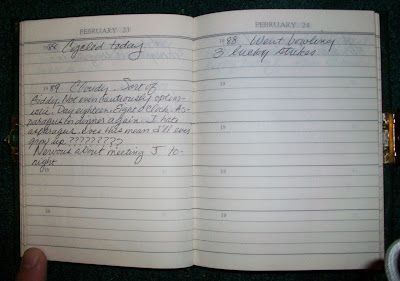 FEBRUARY 23
1988 Cycled today
1989 Cloudy. Sort of
giddy. Not even cautiously optimis-
istic. Day eighteen. Eight o'clock. As-
paragus for dinner again. I hate
asparagus. Does this mean I'll ever
grow up ?????????
Nervous about meeting J to-
night
19
19
FEBRUARY 24
1988 Went bowling
3 lucky strikes.
19
19
19
19